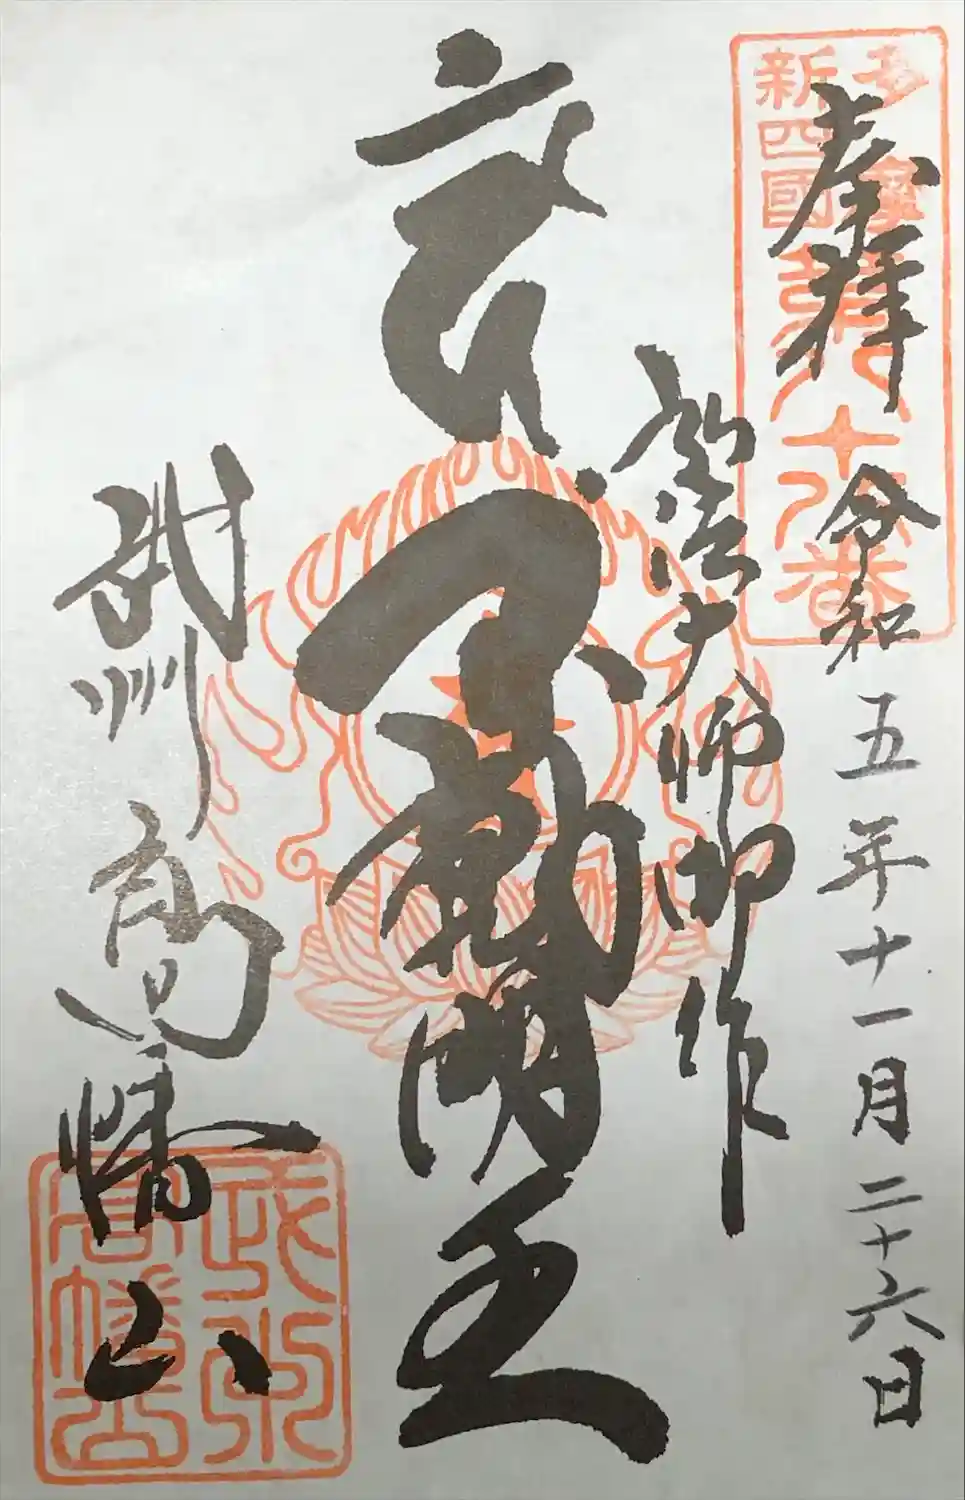 多摩
新四國
第八十八番
奉拝
令和五年十一月二十六日
弘法大師御作
不動明王
武州高幡山
武州
高幡山